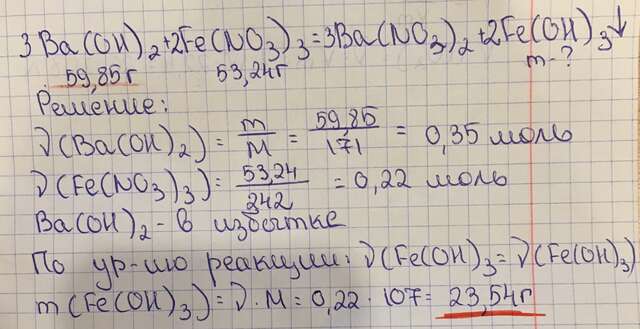 3Ba(OH)2+2Fe(NO3)3=3Ba(NO3)2+2Fe(OH)3↓
59,85г 53,24г m-?
Решение:
ν(Ba(OH)2)=m/M=59,85/171=0,35 моль
ν(Fe(NO3)3)=53,24/242=0,22 моль
Ba(OH)2-в избытке
По ур-ию реакции: ν(Fe(OH)3=ν(Fe(OH)3)
m(Fe(OH)3)=ν·M=0,22·107=23,54г